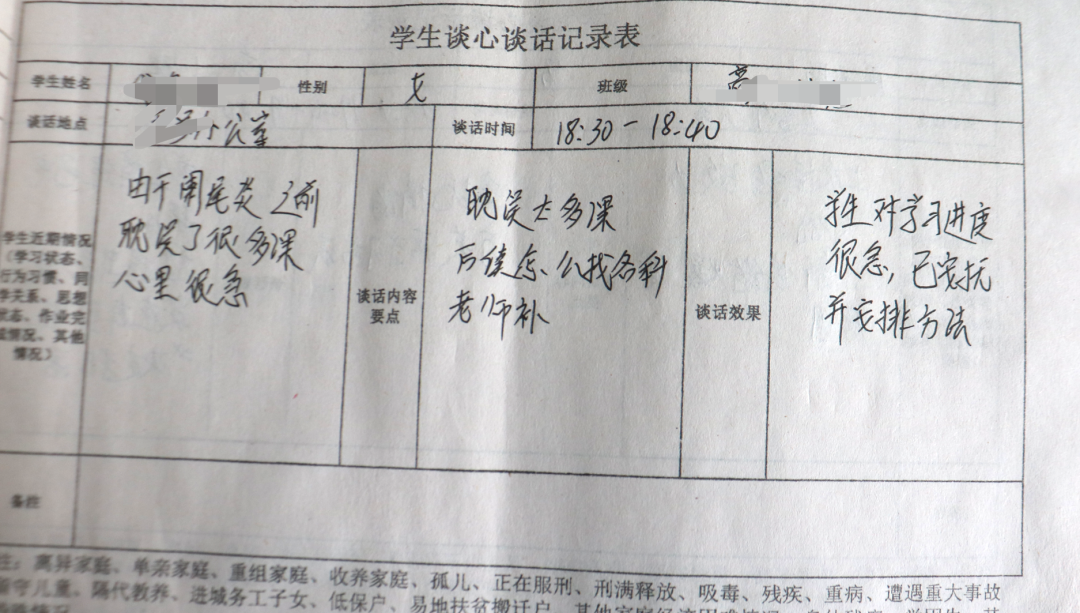 学生谈心谈话记录表
学生姓名 性别 女 班级
谈话地点 办公室 谈话时间 18:30-18:40
学生近期情况
(学习状态、
行为习惯、同
学关系、思想
状态、作业完
成情况、其他
情况)
由于阑尾炎 之前
耽误了很多课
心里很急
谈话内容
要点
耽误太多课
后续怎么找各科
老师补
谈话效果
学生对学习进度
很急,已安抚
并安排方法
备注
注:离异家庭、单亲家庭、重组家庭、收养家庭、孤儿、正在服刑、刑满释放、吸毒、残疾、重病、遭遇重大事故
留守儿童、隔代教养、进城务工子女、低保户、易地扶贫搬迁户、其他家庭经济困难情况